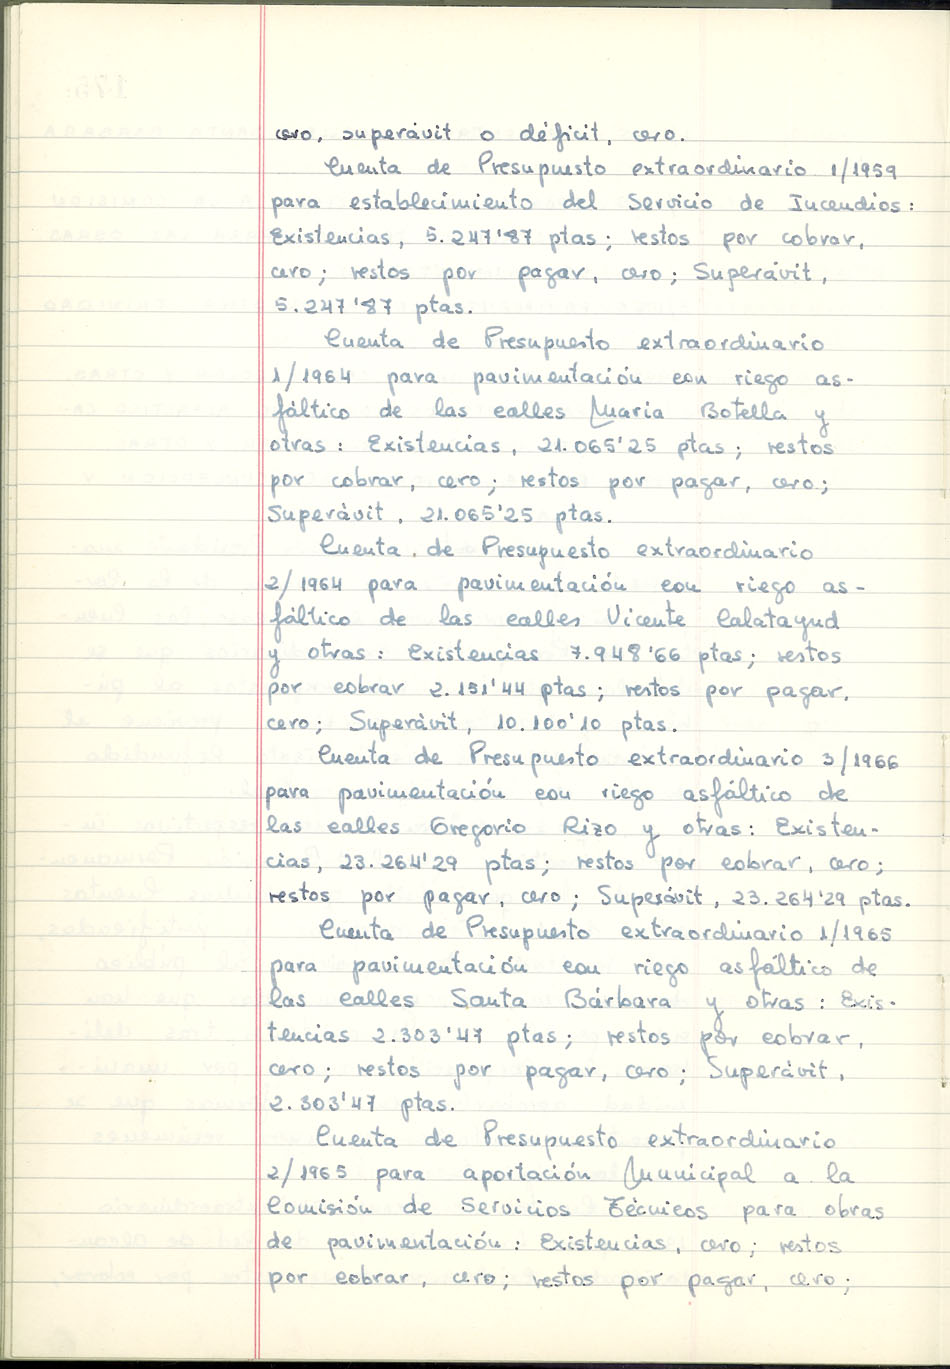 cero, superávit o déficit, cero.
Cuenta de Presupuesto extraordinario 1/1959
para establecimiento del Servicio de Incendios:
Existencias, 5.247'87 ptas; restos por cobrar,
cero; restos por pagar, cero; Superávit,
5.247'87 ptas.
Cuenta de Presupuesto extraordinario
1/1964 para pavimentación con riego as-
fáltico de las calles María Botella y
otras: Existencias, 21.065'25 ptas; restos
por cobrar, cero; restos por pagar, cero;
Superávit, 21.065'25 ptas.
Cuenta de Presupuesto extraordinario
2/1964 para pavimentación con riego as-
fáltico de las calles Vicente Calatayud
y otras: Existencias 7.948'66 ptas; restos
por cobrar 2.151'44 ptas; restos por pagar,
cero; Superávit, 10.100'10 ptas.
Cuenta de Presupuesto extraordinario 3/1966
para pavimentación con riego asfáltico de
las calles Gregorio Rizo y otras: Existen-
cias, 23.264'29 ptas; restos por cobrar, cero;
restos por pagar, cero; Superávit, 23.264'29 ptas.
Cuenta de Presupuesto extraordinario 1/1965
para pavimentación con riego asfáltico de
las calles Santa Bárbara y otras: Exis-
tencias 2.303'47 ptas; restos por cobrar,
cero; restos por pagar, cero; Superávit,
2.303'47 ptas.
Cuenta de Presupuesto extraordinario
2/1965 para aportación Municipal a la
Comisión de Servicios Técnicos para obras
de pavimentación: Existencias, cero; restos
por cobrar, cero; restos por pagar, cero;